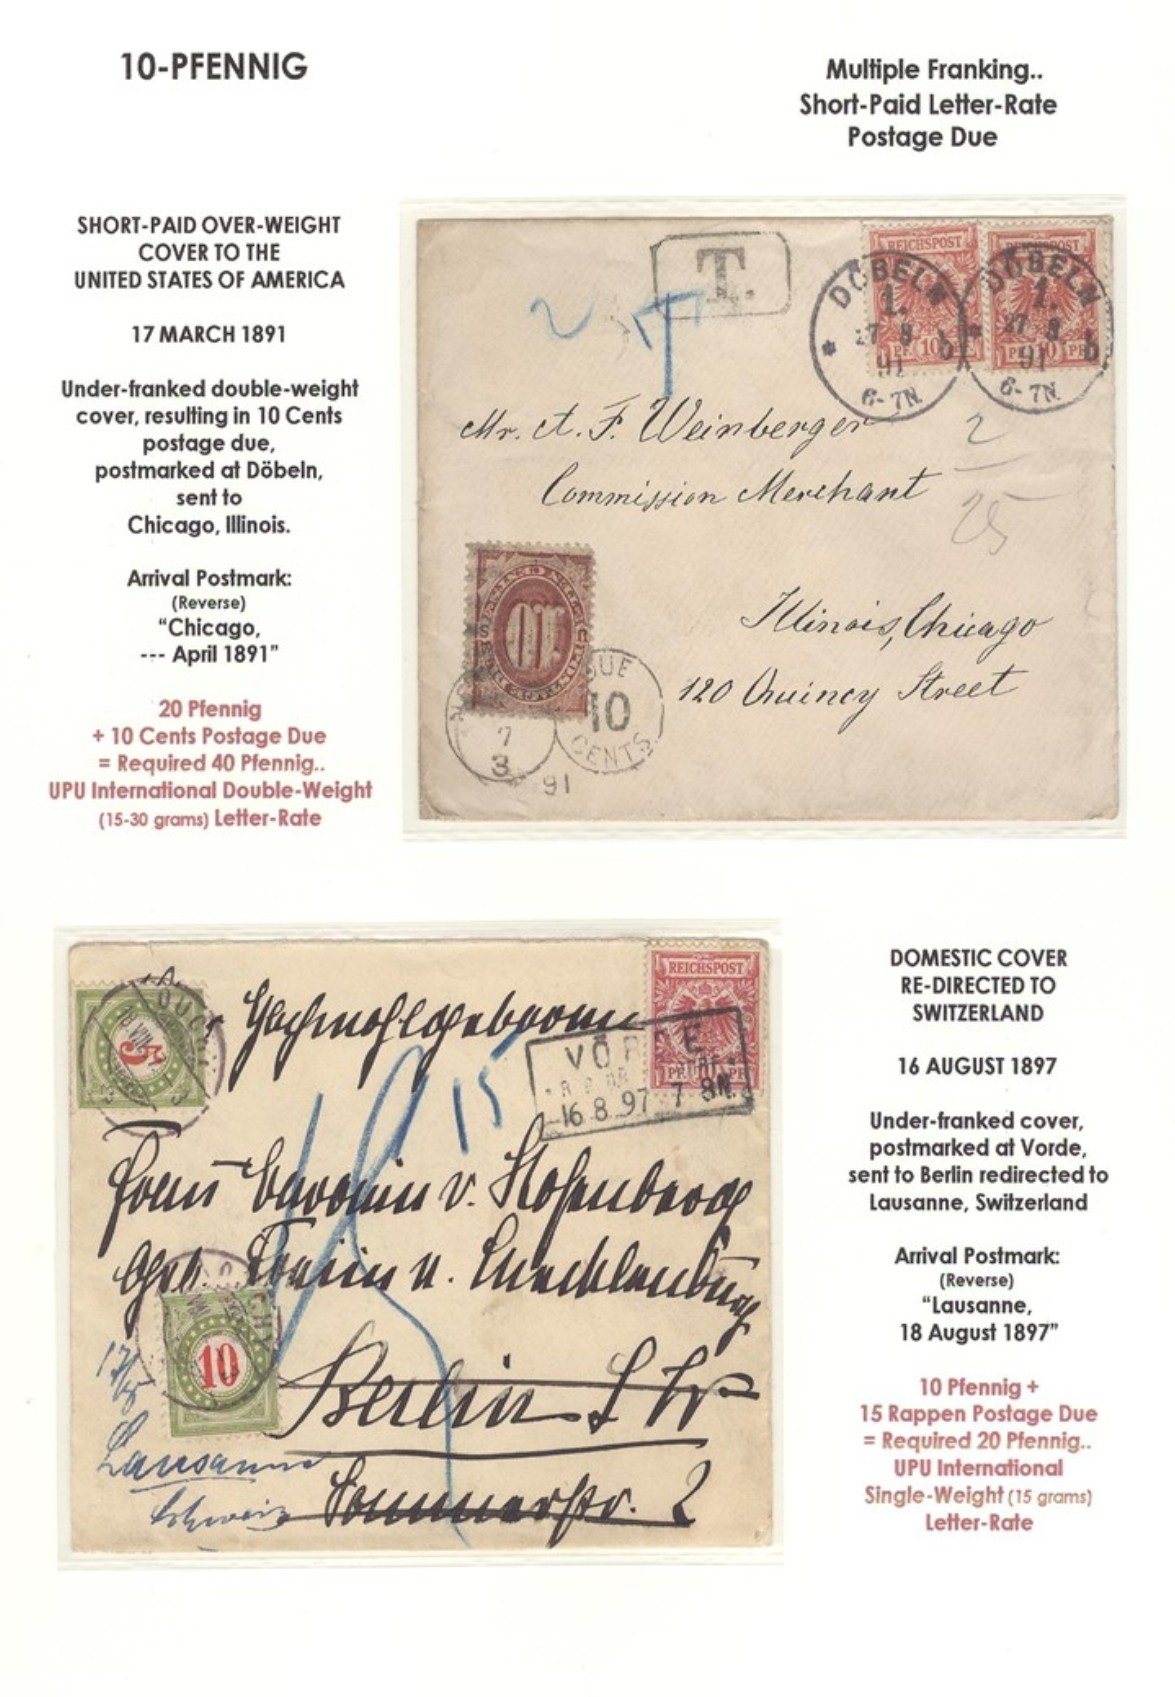 10-PFENNIG
Multiple Franking..
Short-Paid Letter-Rate
Postage Due
SHORT-PAID OVER-WEIGHT
COVER TO THE
UNITED STATES OF AMERICA
17 MARCH 1891
Under-franked double-weight
cover, resulting in 10 Cents
postage due,
postmarked at Döbeln,
sent to
Chicago, Illinois.
Arrival Postmark:
(Reverse)
“Chicago,
--- April 1891”
20 Pfennig
+ 10 Cents Postage Due
= Required 40 Pfennig..
UPU International Double-Weight
(15-30 grams) Letter-Rate
T.
T
REICHSPOST
REICHSPOST
DÖBELN
1.
b
91
6-7N
DÖBELN
1.
b
91
6-7N
Mr. A. F. Weinberger
Commission Merchant
2
25
Illinois, Chicago
120 Quincy Street
10
DUE
10
CENTS
7
3
91
REICHSPOST
5
15
VÖRDE
16.8.97 7-8N.
Berlin S W
10
Lausanne
Schweiz
Sommerstr. 2
DOMESTIC COVER
RE-DIRECTED TO
SWITZERLAND
16 AUGUST 1897
Under-franked cover,
postmarked at Vorde,
sent to Berlin redirected to
Lausanne, Switzerland
Arrival Postmark:
(Reverse)
“Lausanne,
18 August 1897”
10 Pfennig +
15 Rappen Postage Due
= Required 20 Pfennig..
UPU International
Single-Weight (15 grams)
Letter-Rate